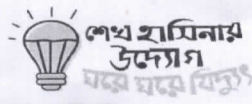 শেখ হাসিনার
উদ্যোগ
ঘরে ঘরে বিদ্যুৎ